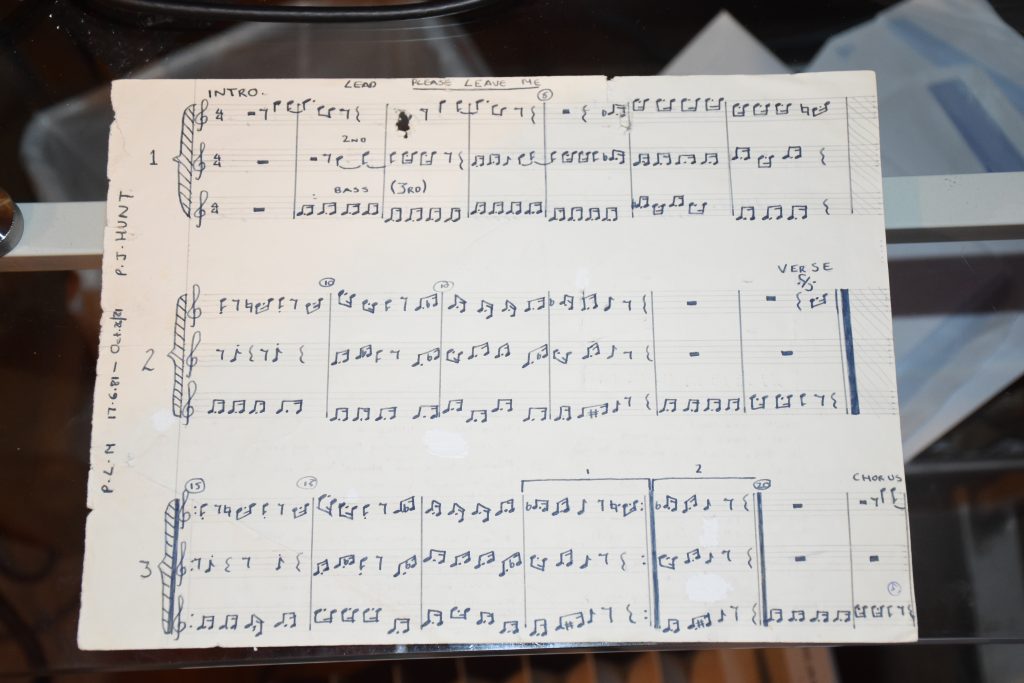 LEAD PLEASE LEAVE ME
INTRO.
5
2ND
1
BASS (3RD)
P.L.M 17.6.81 - Oct.2/81 P.J. HUNT
VERSE
10
2
1 2
CHORUS
15 20
3